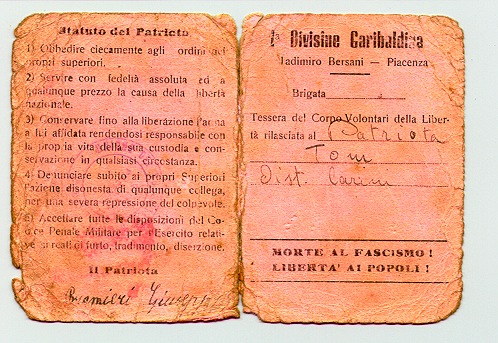 Statuto del Patriota
1) Obbedire ciecamente agli ordini dei
propri superiori.
2) Servire con fedeltà assoluta ed a
qualunque prezzo la causa della libertà
nazionale.
3) Conservare fino alla liberazione l'arma
a lui affidata rendendosi responsabile con
la propria vita della sua custodia e con-
servazione in qualsiasi circostanza.
4) Denunciare subito ai propri Superiori
l'azione disonesta di qualunque collega,
per una severa repressione del colpevole.
5) Accettare tutte le disposizioni del Co-
dice Penale Militare per l'Esercito relati-
ve ai reati di furto, tradimento, diserzione.
Il Patriota
Giuseppe
1ª Divisine Garibaldina
Wladimiro Bersani — Piacenza
Brigata
Tessera del Corpo Volontari della Liber-
tà rilasciata al Patriota
Tom
Dist.
MORTE AL FASCISMO !
LIBERTA' AI POPOLI !